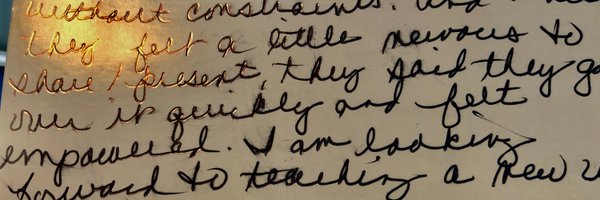 without constraints. And
they felt a little nervous to
share / present, they said they go
over it quickly and felt
empowered. I am looking
forward to teaching a new